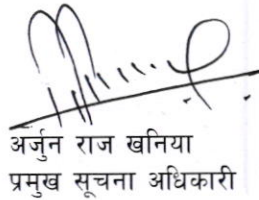 अर्जुन राज खनिया
प्रमुख सूचना अधिकारी